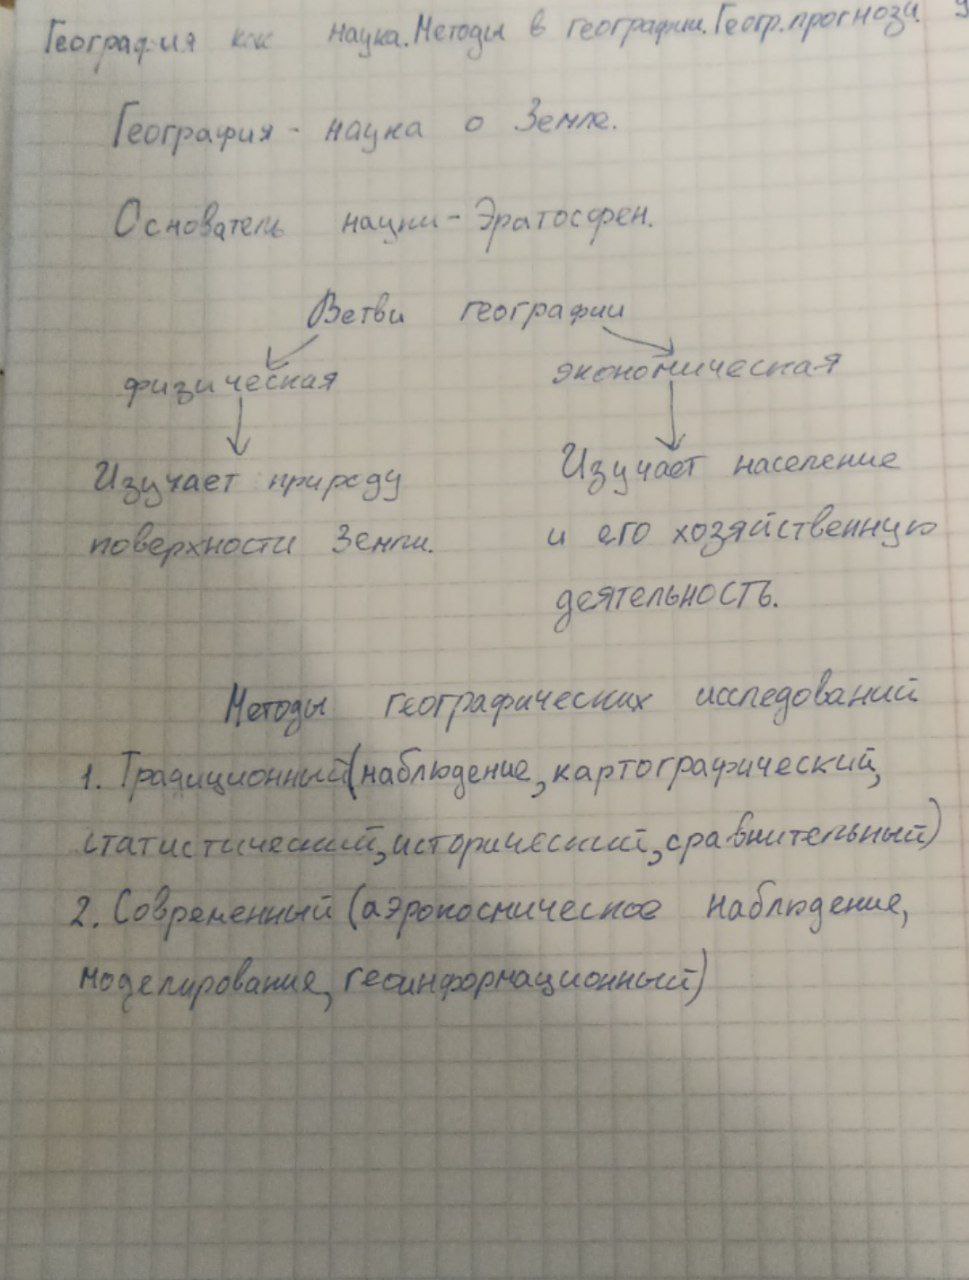 География как наука. Методы в географии. Геогр. прогнози
География - наука о Земле.
Основатель науки - Эратосфен.
Ветви географии
физическая экономическая
Изучает природу
поверхности Земли.
Изучает население
и его хозяйственную
деятельность.
Методы географических исследований
1. Традиционный (наблюдение, картографический,
статистический, исторический, сравнительный)
2. Современный (аэрокосмическое наблюдение,
моделирование, геоинформационный)